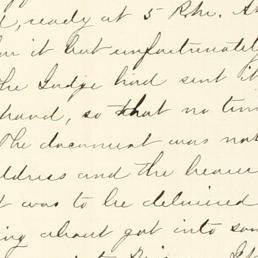 , ready at 5 P.M.
it but unfortunately
the Judge had sent it
hand, so that no tim
The document was not
ddress and the bearer
t was to be delivered
ing about got into som